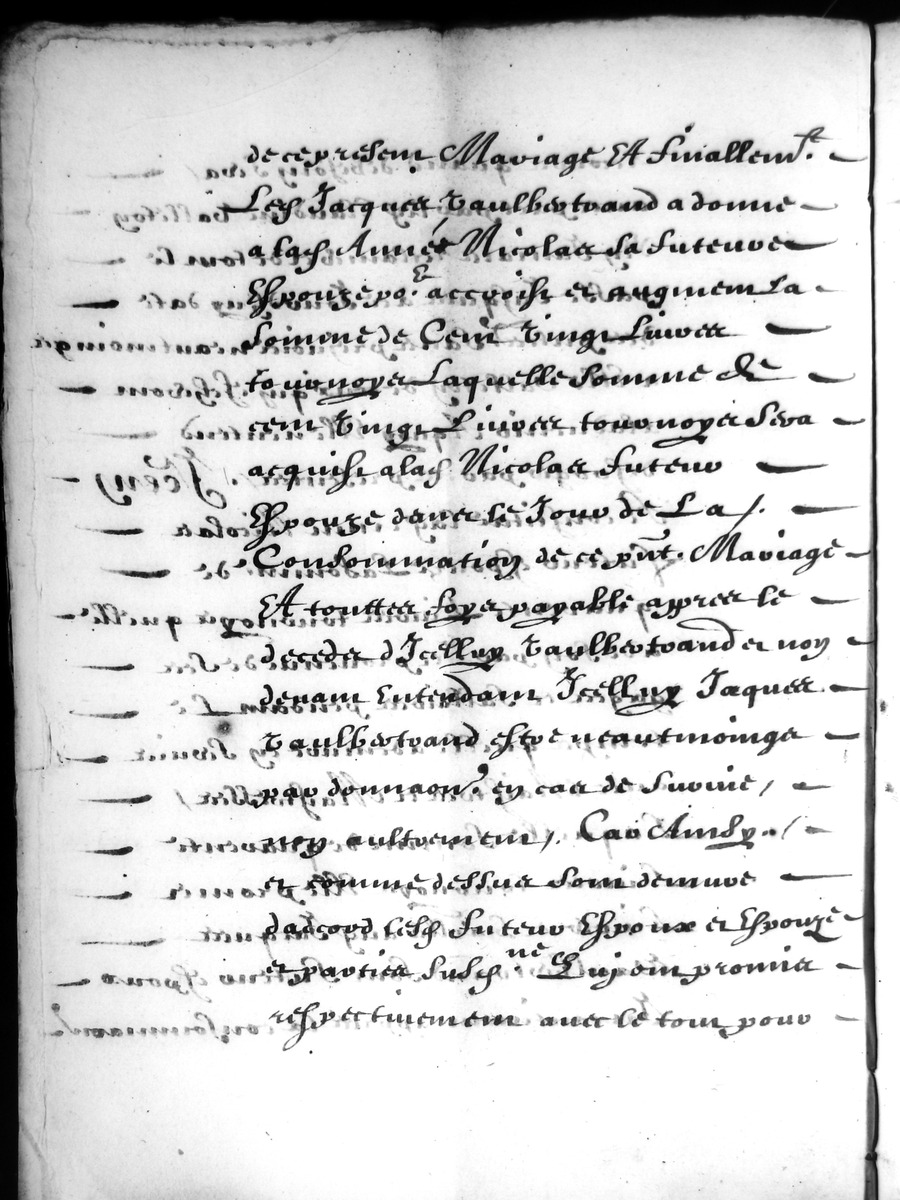 de ce present Mariage Et finallemt.
Led Jacques Vaulbertrand a donne
a lad Année Nicolas sa future
Espouze por accroist et augment La
Somme de Cent Vingt Livres
tournoys Laquelle Somme de
cent Vingt Livres tournoys sera
acquist a lad Nicolas futeur
Espouze dans le Jour de La /.
Consommation de ce pnt. Mariage
Et touttes foys payable appres le
deceder d'Icelluy Vaulbertrand et non
devant Entendant Icelluy Jaques
Vaulbertrand estre neantmoings
par donnaon. en cas de survie /
non aultrement /. Car Ainsy. /
et comme dessus sont demure
daccord lesd futeur Espoux et Espouze
et parties susdnees Quj ont promis
respectivement avec le tout pour